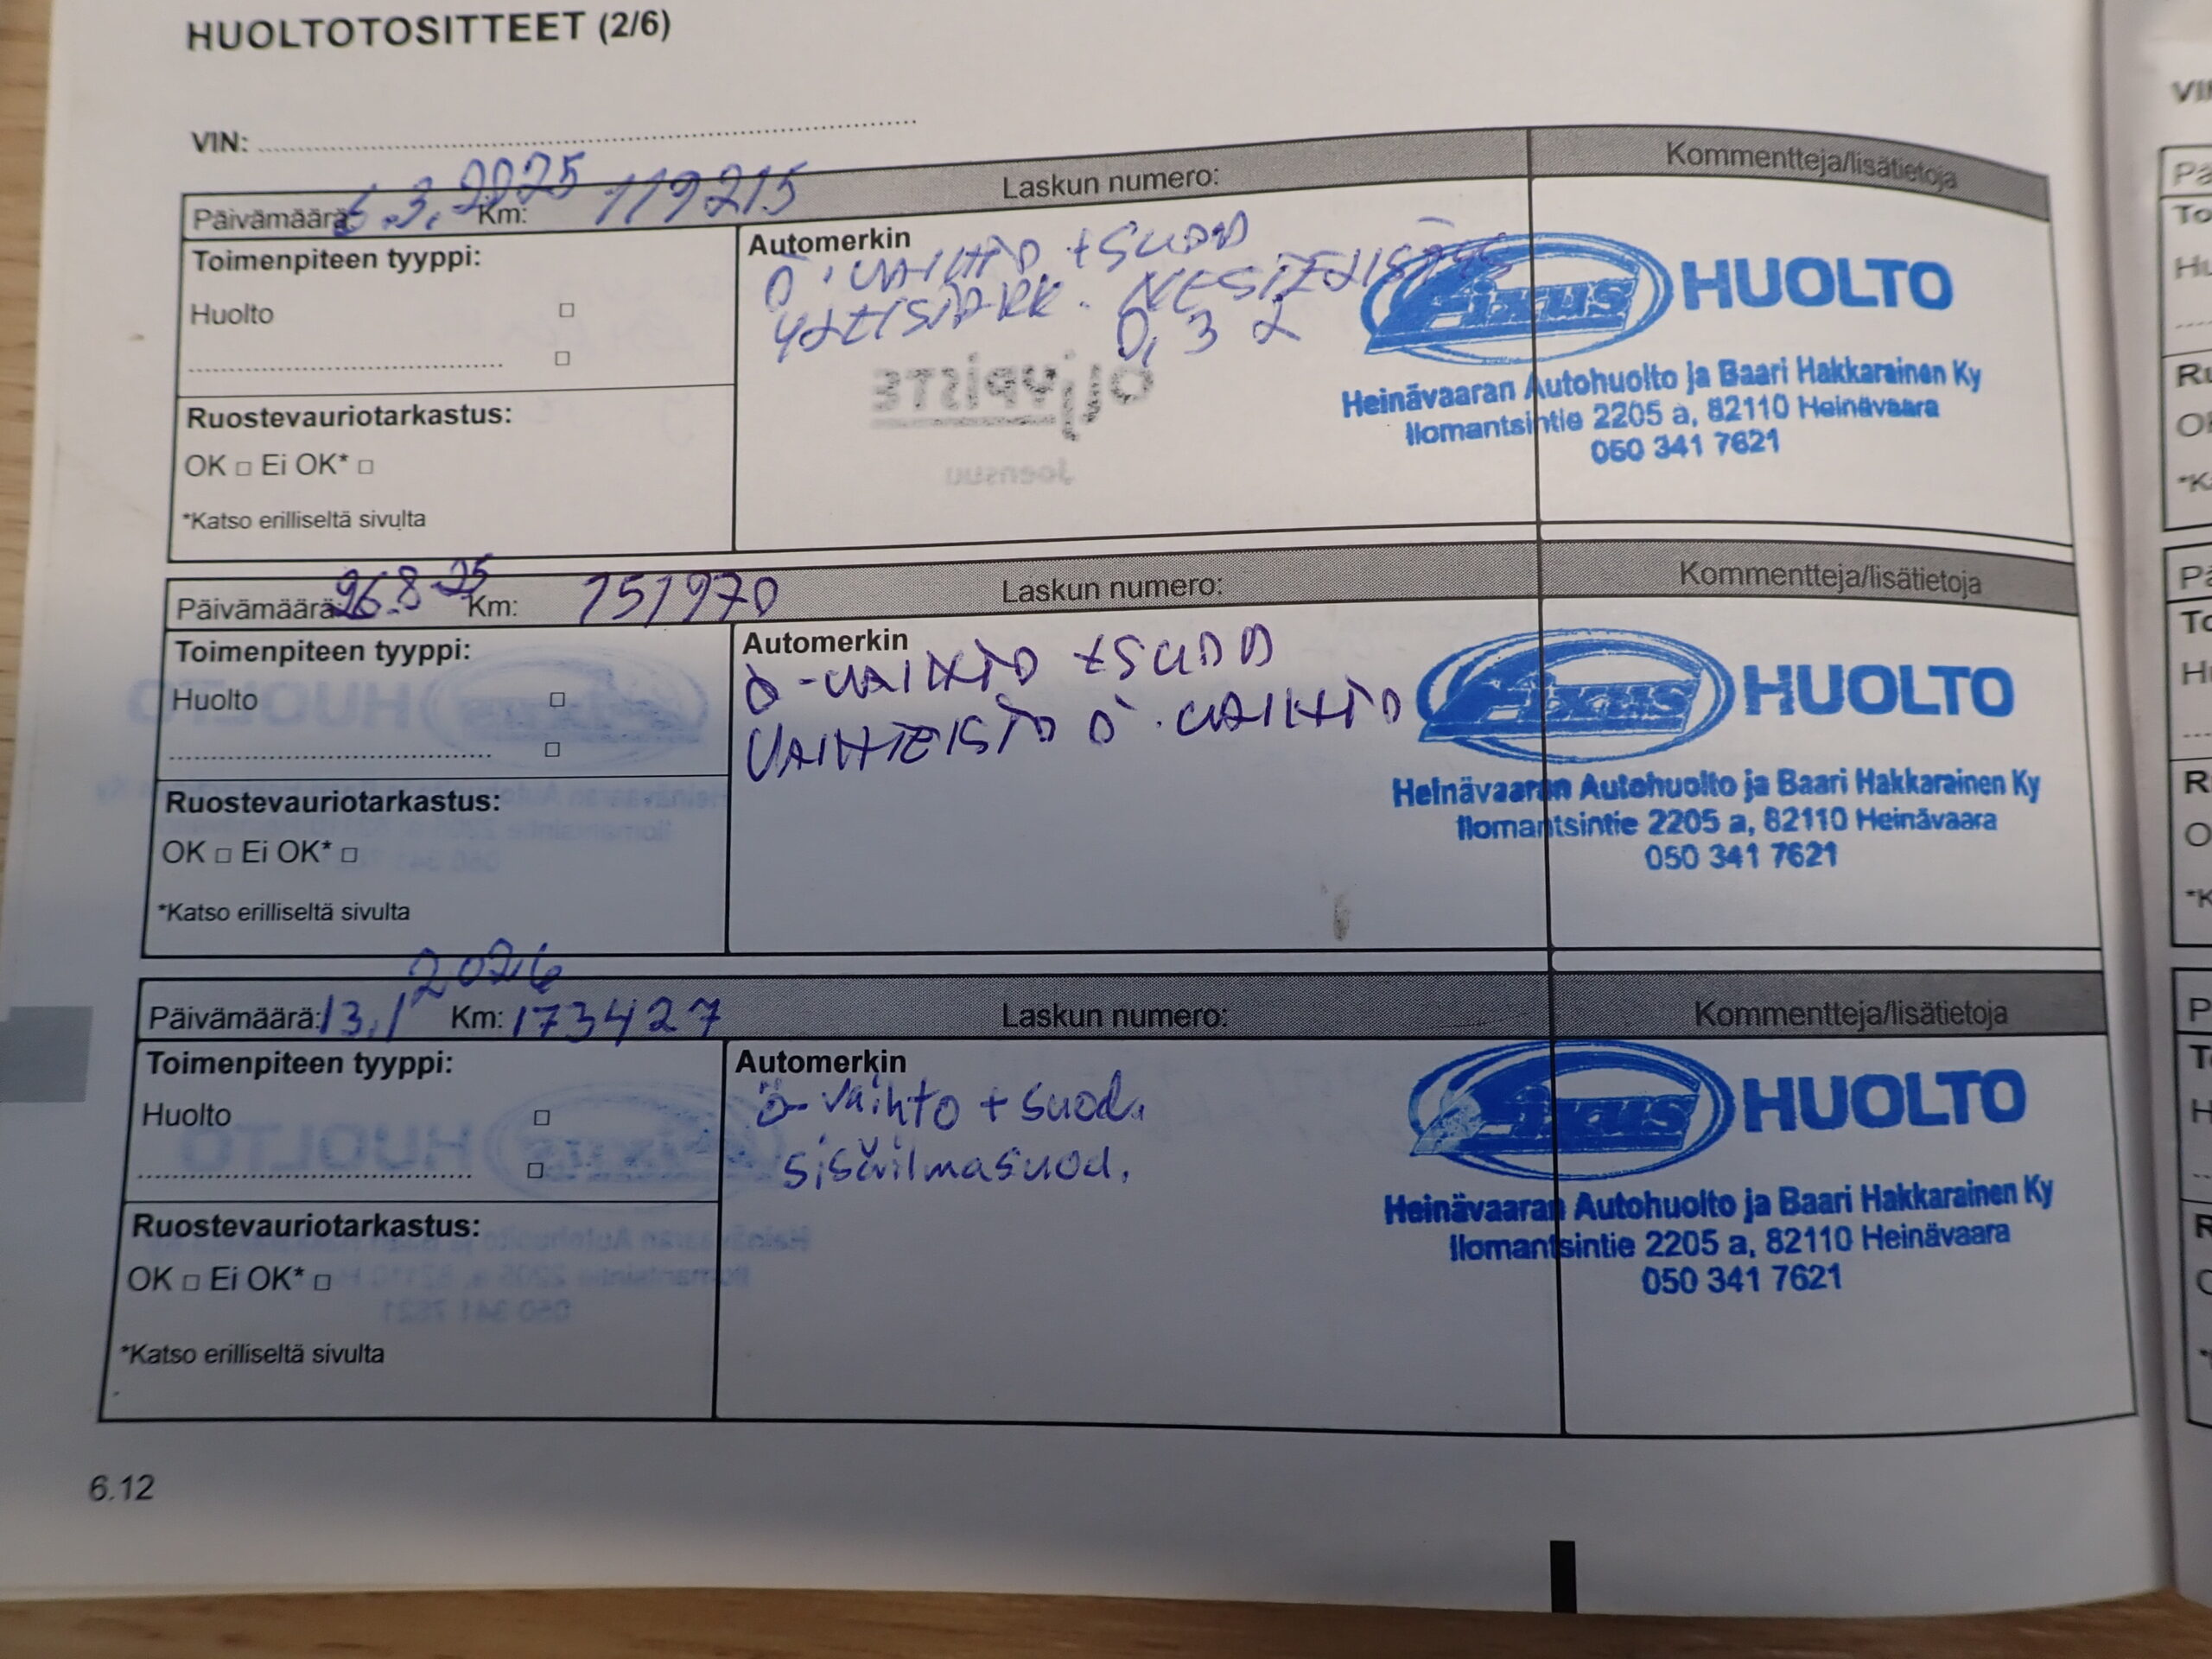 HUOLTOTOSITTEET (2/6)
VIN:
Päivämäärä: 6.3.2025 Km: 119215 Laskun numero: Kommentteja/lisätietoja
Toimenpiteen tyyppi:
Huolto
Ruostevauriotarkastus:
OK Ei OK*
*Katso erilliseltä sivulta
Automerkin
Ö. VAIHTO + SUOD
NESTELISÄYS
0,3 L
ÖLJYPISTE
Joensuu
Fixus HUOLTO
Heinävaaran Autohuolto ja Baari Hakkarainen Ky
Ilomantsintie 2205 a, 82110 Heinävaara
050 341 7621
Päivämäärä 26.8.25 Km: 151970 Laskun numero: Kommentteja/lisätietoja
Toimenpiteen tyyppi:
Huolto
Ruostevauriotarkastus:
OK Ei OK*
*Katso erilliseltä sivulta
Automerkin
Ö-VAIHTO + SUOD
VAIHTEISTO Ö. VAIHTO
Fixus HUOLTO
Heinävaaran Autohuolto ja Baari Hakkarainen Ky
Ilomantsintie 2205 a, 82110 Heinävaara
050 341 7621
Päivämäärä: 13.1 2026 Km: 173427 Laskun numero: Kommentteja/lisätietoja
Toimenpiteen tyyppi:
Huolto
Ruostevauriotarkastus:
OK Ei OK*
*Katso erilliseltä sivulta
Automerkin
ö-vaihto + suod.
sisäilmasuod.
Fixus HUOLTO
Heinävaaran Autohuolto ja Baari Hakkarainen Ky
Ilomantsintie 2205 a, 82110 Heinävaara
050 341 7621
6.12